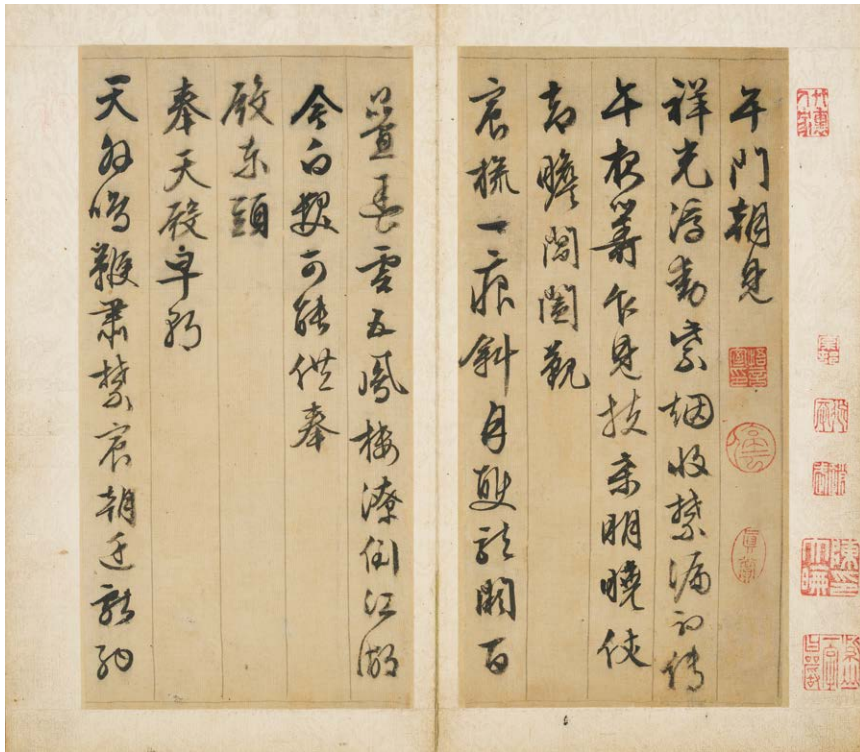 午門朝見
祥光浮動紫烟收禁漏初傳
午夜籌乍見扶桑明曉仗
却瞻閶闔覲
宸旒一痕斜月雙龍闕百
疊春雲五鳳樓潦倒江湖
今白髮可能供奉
殿東頭
奉天殿早朝
天外鳴鞭肅禁宸朝廷